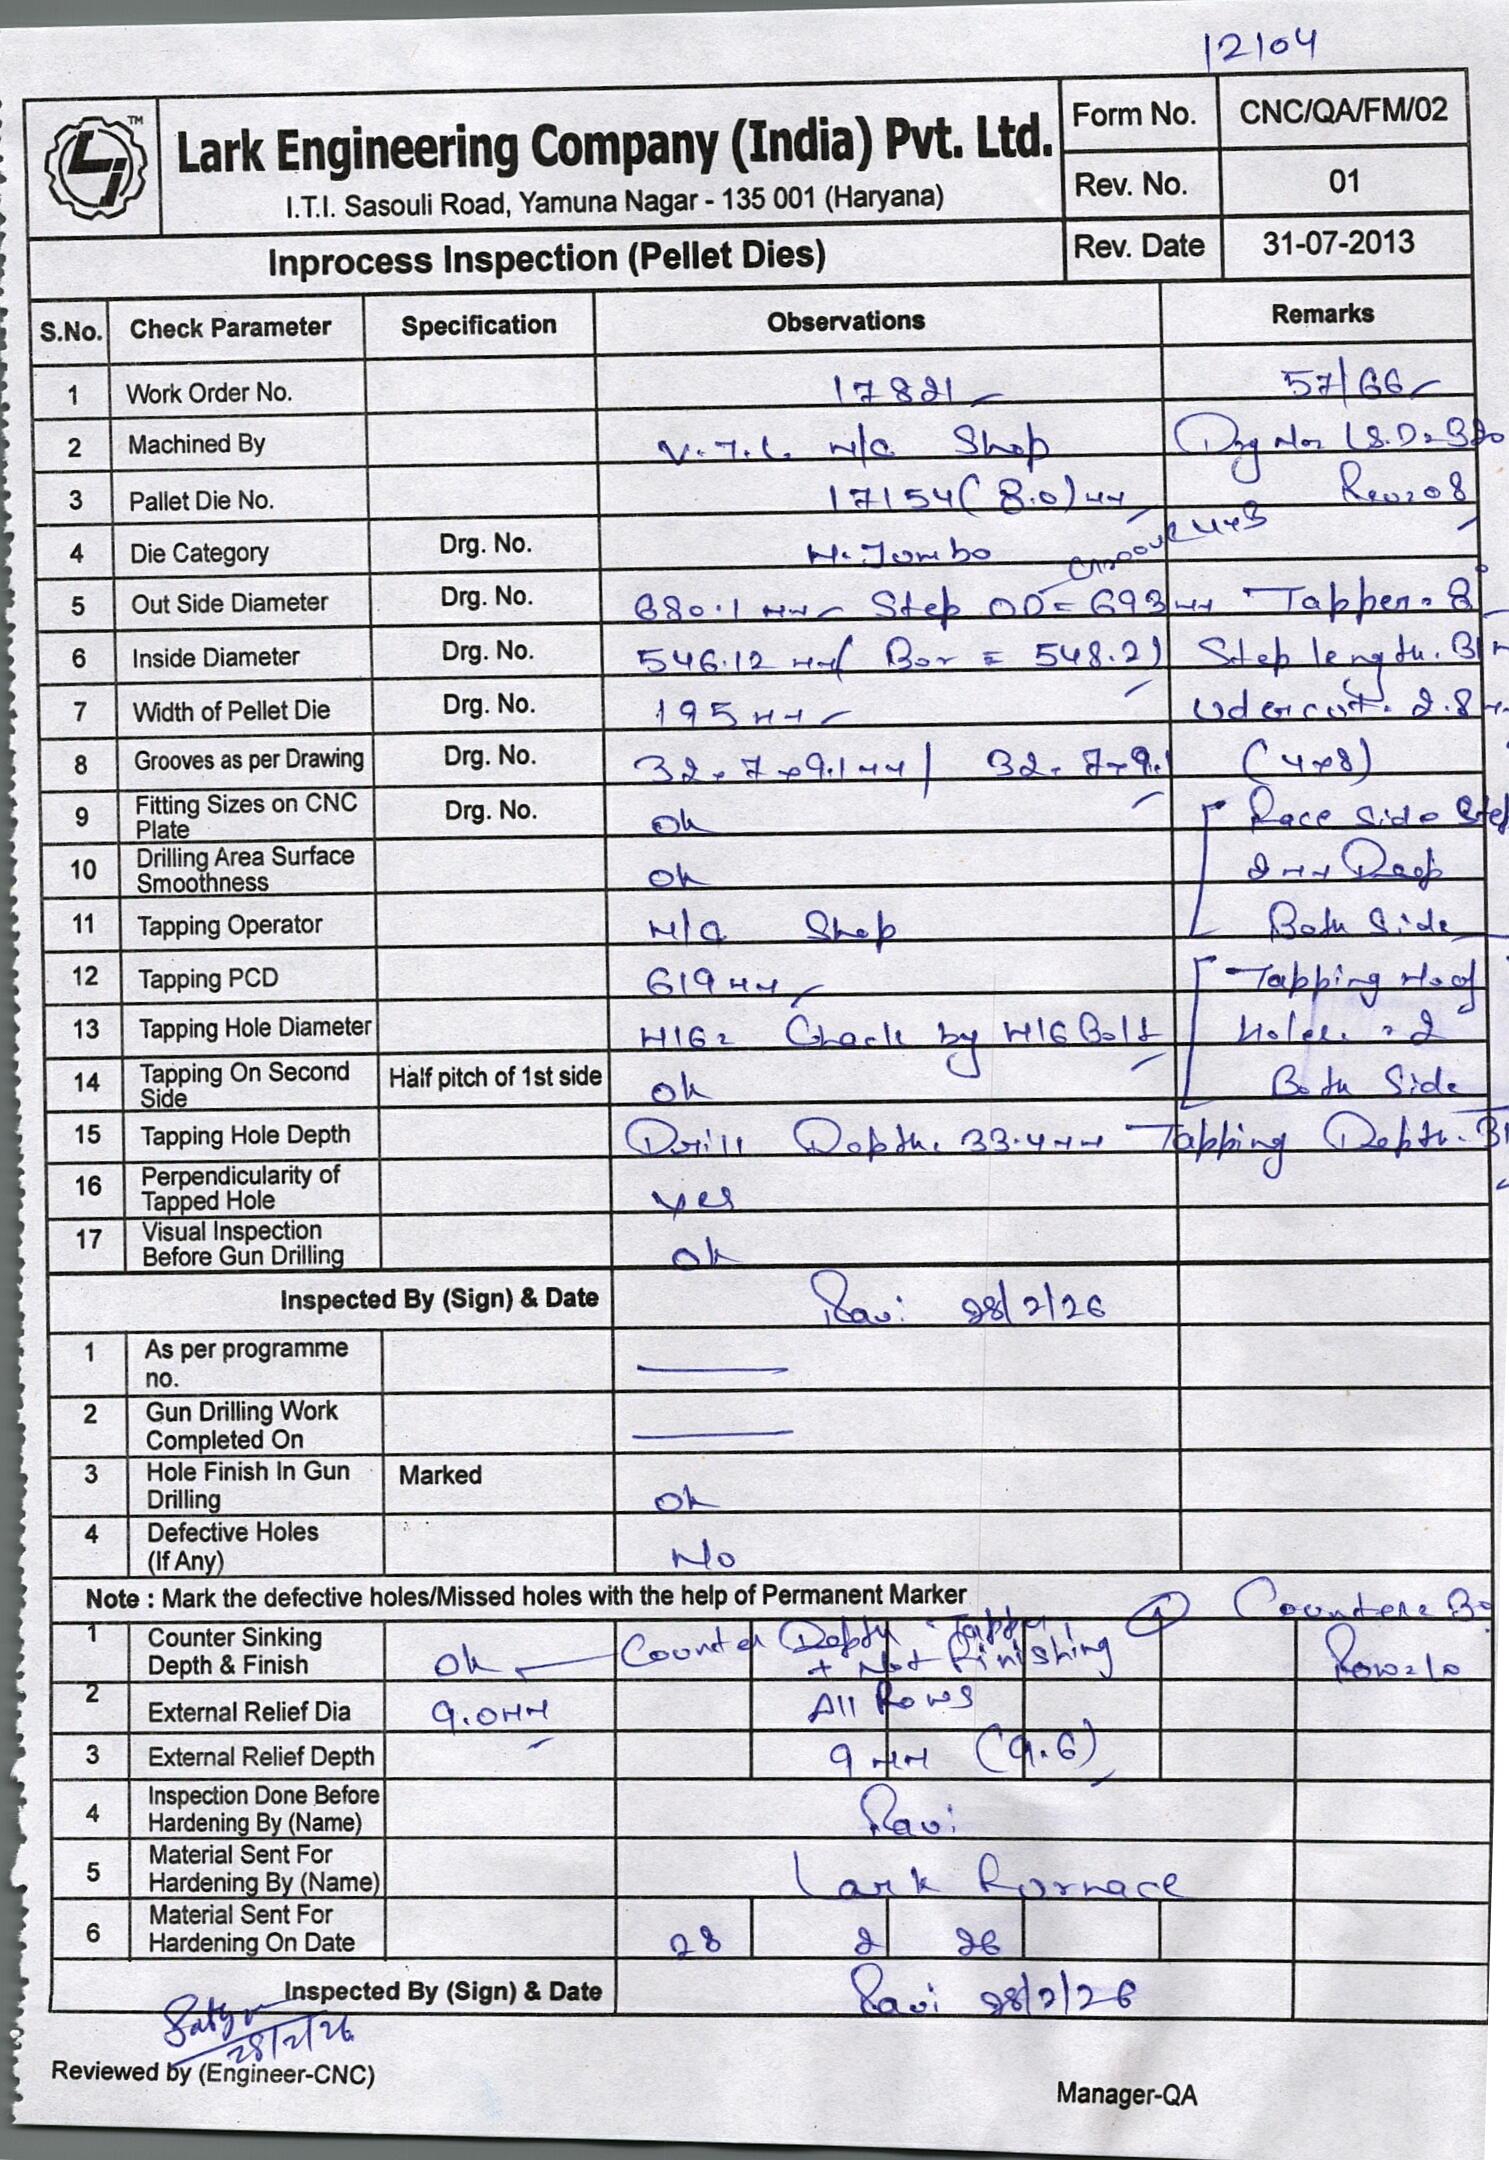 12104
TM
Lark Engineering Company (India) Pvt. Ltd.
I.T.I. Sasouli Road, Yamuna Nagar - 135 001 (Haryana)
Form No. CNC/QA/FM/02
Rev. No. 01
Inprocess Inspection (Pellet Dies)
Rev. Date 31-07-2013
S.No. Check Parameter Specification Observations Remarks
1 Work Order No. 17821 57/66
2 Machined By V.T.L M/C Shop Drg No
3 Pallet Die No. 17154 (8.0) Rev=08
4 Die Category Drg. No. M. Jumbo
5 Out Side Diameter Drg. No. 680.1 Step OD = 693 Tapper = 8°
6 Inside Diameter Drg. No. 546.12 (Bor = 548.2) Step length.
7 Width of Pellet Die Drg. No. 195 Udercut. 2.8
8 Grooves as per Drawing Drg. No. 32 7 9.1 / 32 7 9.1 (4x8)
9 Fitting Sizes on CNC Plate Drg. No. ok Race Side Step
10 Drilling Area Surface Smoothness ok 2 Deep
11 Tapping Operator M/C Shop Both Side
12 Tapping PCD 619 Tapping No of
13 Tapping Hole Diameter M16 Check by M16 Bolt Holes = 2
14 Tapping On Second Side Half pitch of 1st side ok Both Side
15 Tapping Hole Depth Drill Depth. 33.4 Tapping Depth.
16 Perpendicularity of Tapped Hole yes
17 Visual Inspection Before Gun Drilling ok
Inspected By (Sign) & Date Ravi 28/2/26
1 As per programme no.
2 Gun Drilling Work Completed On
3 Hole Finish In Gun Drilling Marked ok
4 Defective Holes (If Any) No
Note : Mark the defective holes/Missed holes with the help of Permanent Marker
1 Counter Sinking Depth & Finish ok Counter Depth Tapper + Not Finishing Counter
2 External Relief Dia 9.0 All Rows
3 External Relief Depth 9 (9.6)
4 Inspection Done Before Hardening By (Name) Ravi
5 Material Sent For Hardening By (Name) Lark Furnace
6 Material Sent For Hardening On Date 28 2 26
Inspected By (Sign) & Date Ravi 28/2/26
28/2/26
Reviewed by (Engineer-CNC)
Manager-QA